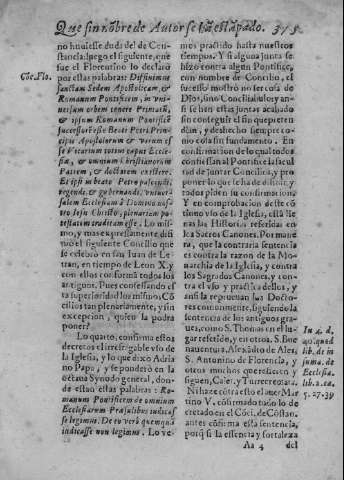 Que sin nõbre de Autor se ha estãpado. 375
no huuiesse duda del de Cons-
tancia: luego el siguiente, que
fue el Florentino lo declarò
por estas palabras: Diffinimus
Cõc. Flo.
sanctam Sedem Apostolicam, &
Romanum Pontificem, in vni-
uersum orbem tenere Primatũ,
& ipsum Romanum Pontificẽ
successorẽ esse Beati Petri Prin-
cipis Apostolorum & verum es-
se Vicarium totius caput Eccle-
siæ, & omnium Christianorum
Patrem, & doctorem existere.
Et ipsi in beato Petro pascendi,
regendi, & gubernandi, vniuer-
salem Ecclesiã à Domino nos-
tro Iesu Christo, plenariam po-
testatem traditam esse. Lo mis-
mo, y mas expressamente difi-
niò el siguiente Concilio que
se celebrò en san Iuan de Le-
tran, en tiempo de Leon X. y
con ellos conformã todos los
antiguos. Pues confessando es-
ta superioridad los mismos Cõ
cilios tan plenariamente, y sin
excepcion, quien la podra
poner?
Lo quarto, confirma estos
decretos el irrefragable vso de
la Iglesia, y lo que dixo Adria
no Papa, y se ponderò en la
octaua Synodo general, don-
de estan estas palabras: Ro-
manum Pontificem de omnium
Ecclesiarum Præsulibus iudicas
se legimus. De eo verò quemquã
iudicasse non legimus. Lo ve-
mos practicado hasta nuestros
tiempos. Y si alguna junta se
hizo contra algun Pontifice,
con nombre de Concilio, el
sucesso mostrò no ser cosa de
Dios, sino Conciliabulo: y an-
si se han estas juntas acabado
sin conseguir el fin que preten-
dian, y deshecho siempre co-
mo cosa sin fundamento. En
confirmacion de lo qual todos
confiessan al Pontifice la facul
tad de juntar Concilios, y pro
poner lo que se ha de tratar, y
todos piden su confirmacion.
Y en comprobacion deste cõ
tinuo vso de la Iglesia, està lle
nas las Historias referidas en
los Sacros Canones. Por mane
ra, que la contraria sentencia
es contra la razon de la Mo-
narchia de la Iglesia, y contra
los Sagrados Canones, y con-
tra el vso y practica dellos, y
ansi la reprueuan los Docto-
res comunmente, siguiendo la
sentencia de los antiguos gra-
ues, como S. Thomas en el lu-
gar referido, y en otros, S. Bue
nauentura, Alexandro de Ales,
S. Antonino de Florencia, y
otros muchos que refieren y
siguen, Caiet. y Turrecremata.
In 4. d.
Ni haze contra esto el auer Mar
tino V. confirmado todo lo de
cretado en el Cõci. de Cõstan.
antes confirma esta sentencia,
porq̃ si la essencia y fortaleza
5. 27. 39
Aa 4 del